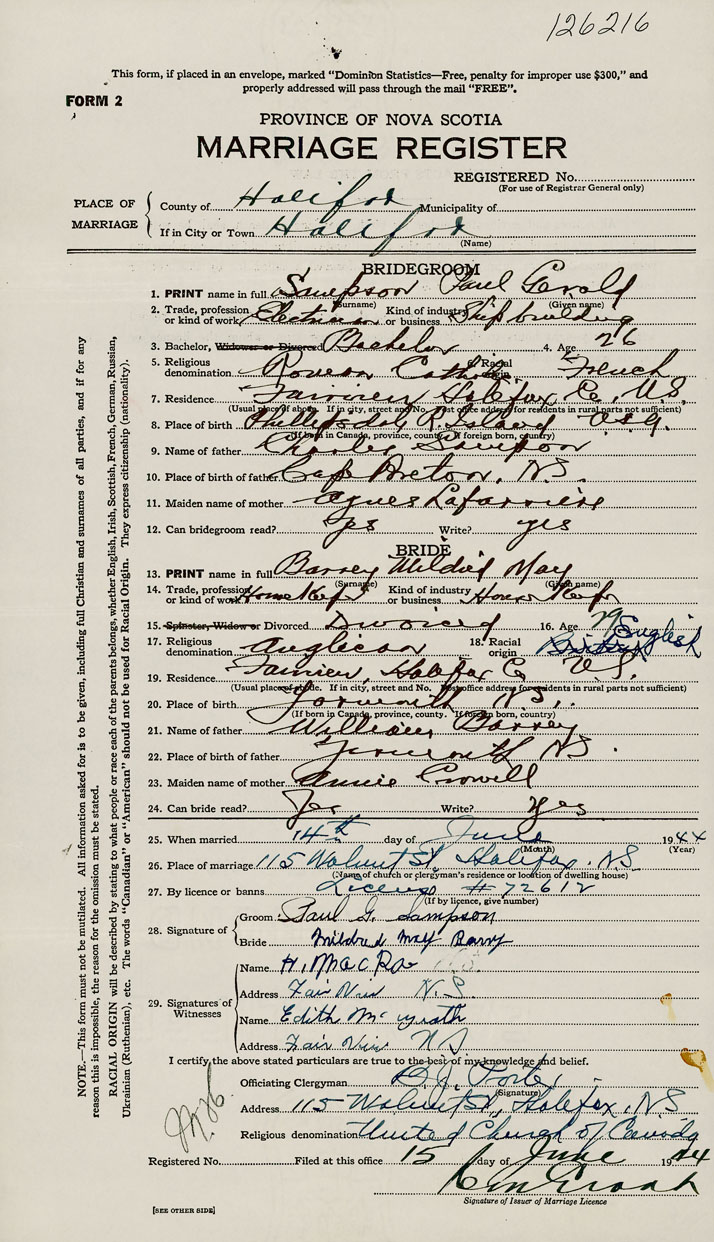 126216
This form, if placed in an envelope, marked “Dominion Statistics—Free, penalty for improper use $300,” and
properly addressed will pass through the mail “FREE”.
FORM 2
PROVINCE OF NOVA SCOTIA
MARRIAGE REGISTER
REGISTERED No.
(For use of Registrar General only)
PLACE OF MARRIAGE
County of Halifax Municipality of
If in City or Town Halifax
(Name)
BRIDEGROOM
1. PRINT name in full Sampson Paul Gerald
(Surname) (Given name)
2. Trade, profession or kind of work Electrician Kind of industry or business Shipbuilding
3. Bachelor, Widower or Divorced Bachelor 4. Age 26
5. Religious denomination Roman Catholic 6. Racial origin French
7. Residence Fairview Halifax Co, N.S.
(Usual place of abode. If in city, street and No. Post office address for residents in rural parts not sufficient)
8. Place of birth Phillipsdale R. Island U.S.A.
(If born in Canada, province, county. If foreign born, country)
9. Name of father Charles Sampson
10. Place of birth of father Cape Breton, N.S.
11. Maiden name of mother Agnes Lafarriere
12. Can bridegroom read? yes Write? yes
BRIDE
13. PRINT name in full Barrey Mildred May
(Surname) (Given name)
14. Trade, profession or kind of work Home Keeper Kind of industry or business House Keeper
15. Spinster, Widow or Divorced Divorced 16. Age 29
17. Religious denomination Anglican 18. Racial origin English
19. Residence Fairview, Halifax Co N.S.
(Usual place of abode. If in city, street and No. Post office address for residents in rural parts not sufficient)
20. Place of birth Yarmouth N.S.
(If born in Canada, province, county. If foreign born, country)
21. Name of father William Barrey
22. Place of birth of father Yarmouth NS.
23. Maiden name of mother Annie Crowell
24. Can bride read? Yes Write? Yes
25. When married 14th day of June 1944
(Month) (Year)
26. Place of marriage 115 Walnut St, Halifax. N.S.
(Name of church or clergyman's residence or location of dwelling house)
27. By licence or banns License #72612
(If by licence, give number)
28. Signature of
Groom Paul G. Sampson
Bride Mildred May Barry
29. Signatures of Witnesses
Name H. MacRae
Address Fairview N.S.
Name Edith
Address Fairview NS
I certify the above stated particulars are true to the best of my knowledge and belief.
Officiating Clergyman D.J.
(Signature)
Address 115 Walnut St, Halifax, N.S
Religious denomination United Church of Canada
Registered No. Filed at this office 15 day of June 1944
Signature of Issuer of Marriage Licence
[SEE OTHER SIDE]
NOTE.—This form must not be mutilated. All information asked for is to be given, including full Christian and surnames of all parties, and if for any
reason this is impossible, the reason for the omission must be stated.
RACIAL ORIGIN will be described by stating to what people or race each of the parents belongs, whether English, Irish, Scottish, French, German, Russian,
Ukrainian (Ruthenian), etc. The words “Canadian” or “American” should not be used for Racial Origin. They express citizenship (nationality).